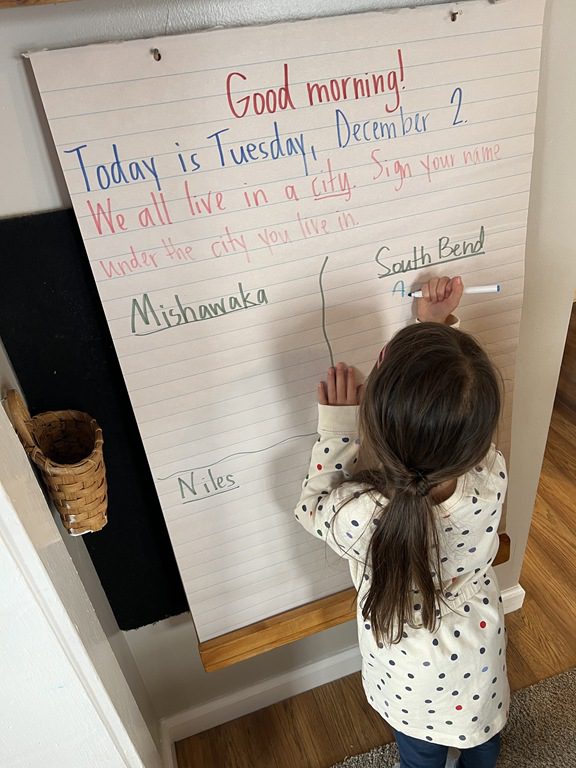 Good morning!
Today is Tuesday, December 2.
We all live in a city. Sign your name
under the city you live in.
South Bend
A
Mishawaka
Niles